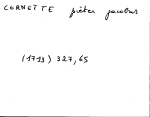 CORNETTE pieter jacobus
(1719) 327,65